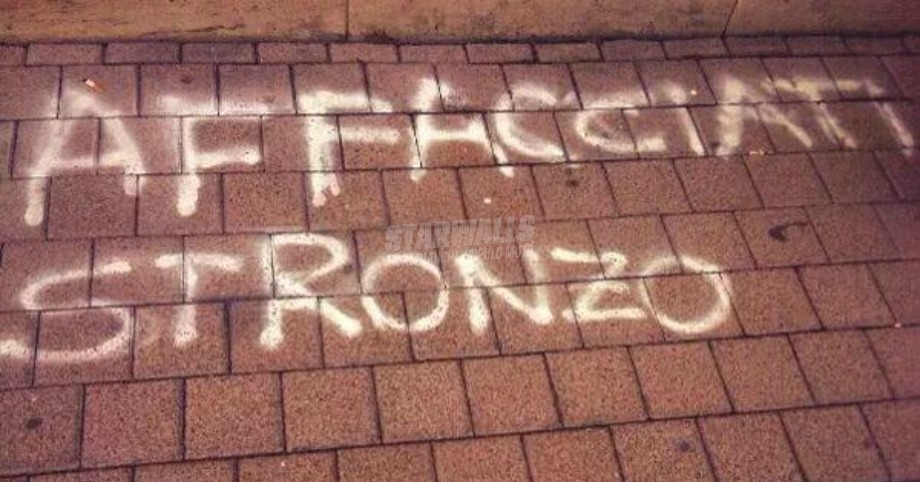 AFFACCIATI
STRONZO
STARWALLS